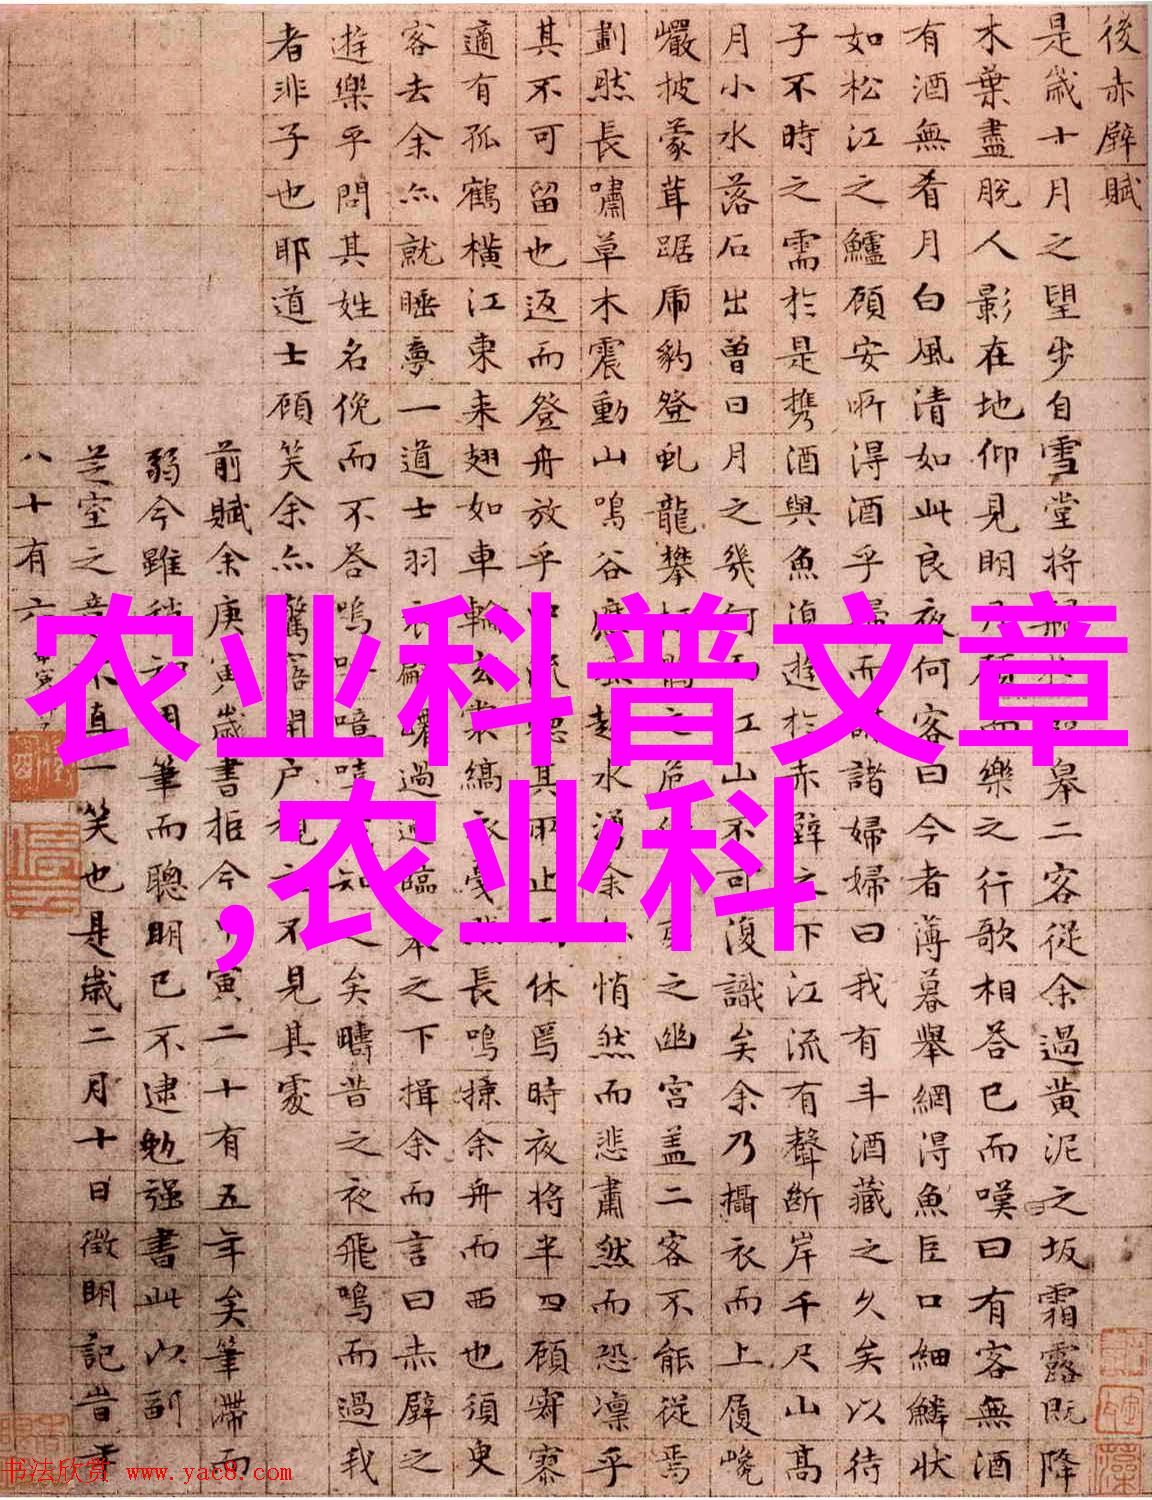 後赤壁賦
是歲十月之望步自雪堂將歸皋二客從余過黃泥之坂霜露既降
木葉盡脫人影在地仰見明月顧而樂之行歌相答已而嘆曰有客無酒
有酒無肴月白風清如此良夜何客曰今者薄暮舉網得魚巨口細鱗狀
如松江之鱸顧安所得酒乎歸而謀諸婦婦曰我有斗酒藏之久矣以待
子不時之需於是攜酒與魚復遊於赤壁之下江流有聲斷岸千尺山高
月小水落石出曾日月之幾何而江山不可復識矣余乃攝衣而上履巉
巖披蒙茸踞虎豹登虬龍攀鶻之危夷之幽宮蓋二客不能從焉
劃然長嘯草木震動山鳴谷應風起水湧余亦悄然而悲肅然而恐凜乎
其不可留也返而登舟放乎中流聽其所止而休焉時夜將半四顧寂寥
適有孤鶴橫江東來翅如車輪玄裳縞衣戛然長鳴掠余舟而西也須臾
客去余亦就睡夢一道士羽衣翩躚過臨皋之下揖余而言曰赤壁之
遊樂乎問其姓名俛而不答嗚呼噫嘻我知之矣疇昔之夜飛鳴而過我
者非子也耶道士顧笑余亦驚寤開戶視之不見其處
前賦余庚寅歲書拒今丙寅二十有五年矣筆滯而
弱今雖稍知用筆而聰明已不逮勉强書此以副
芝室之意不直一笑也是歲二月十日徵明記時年
八十有六
农业科普文章
,农业科
书法欣赏 www.yac8.com